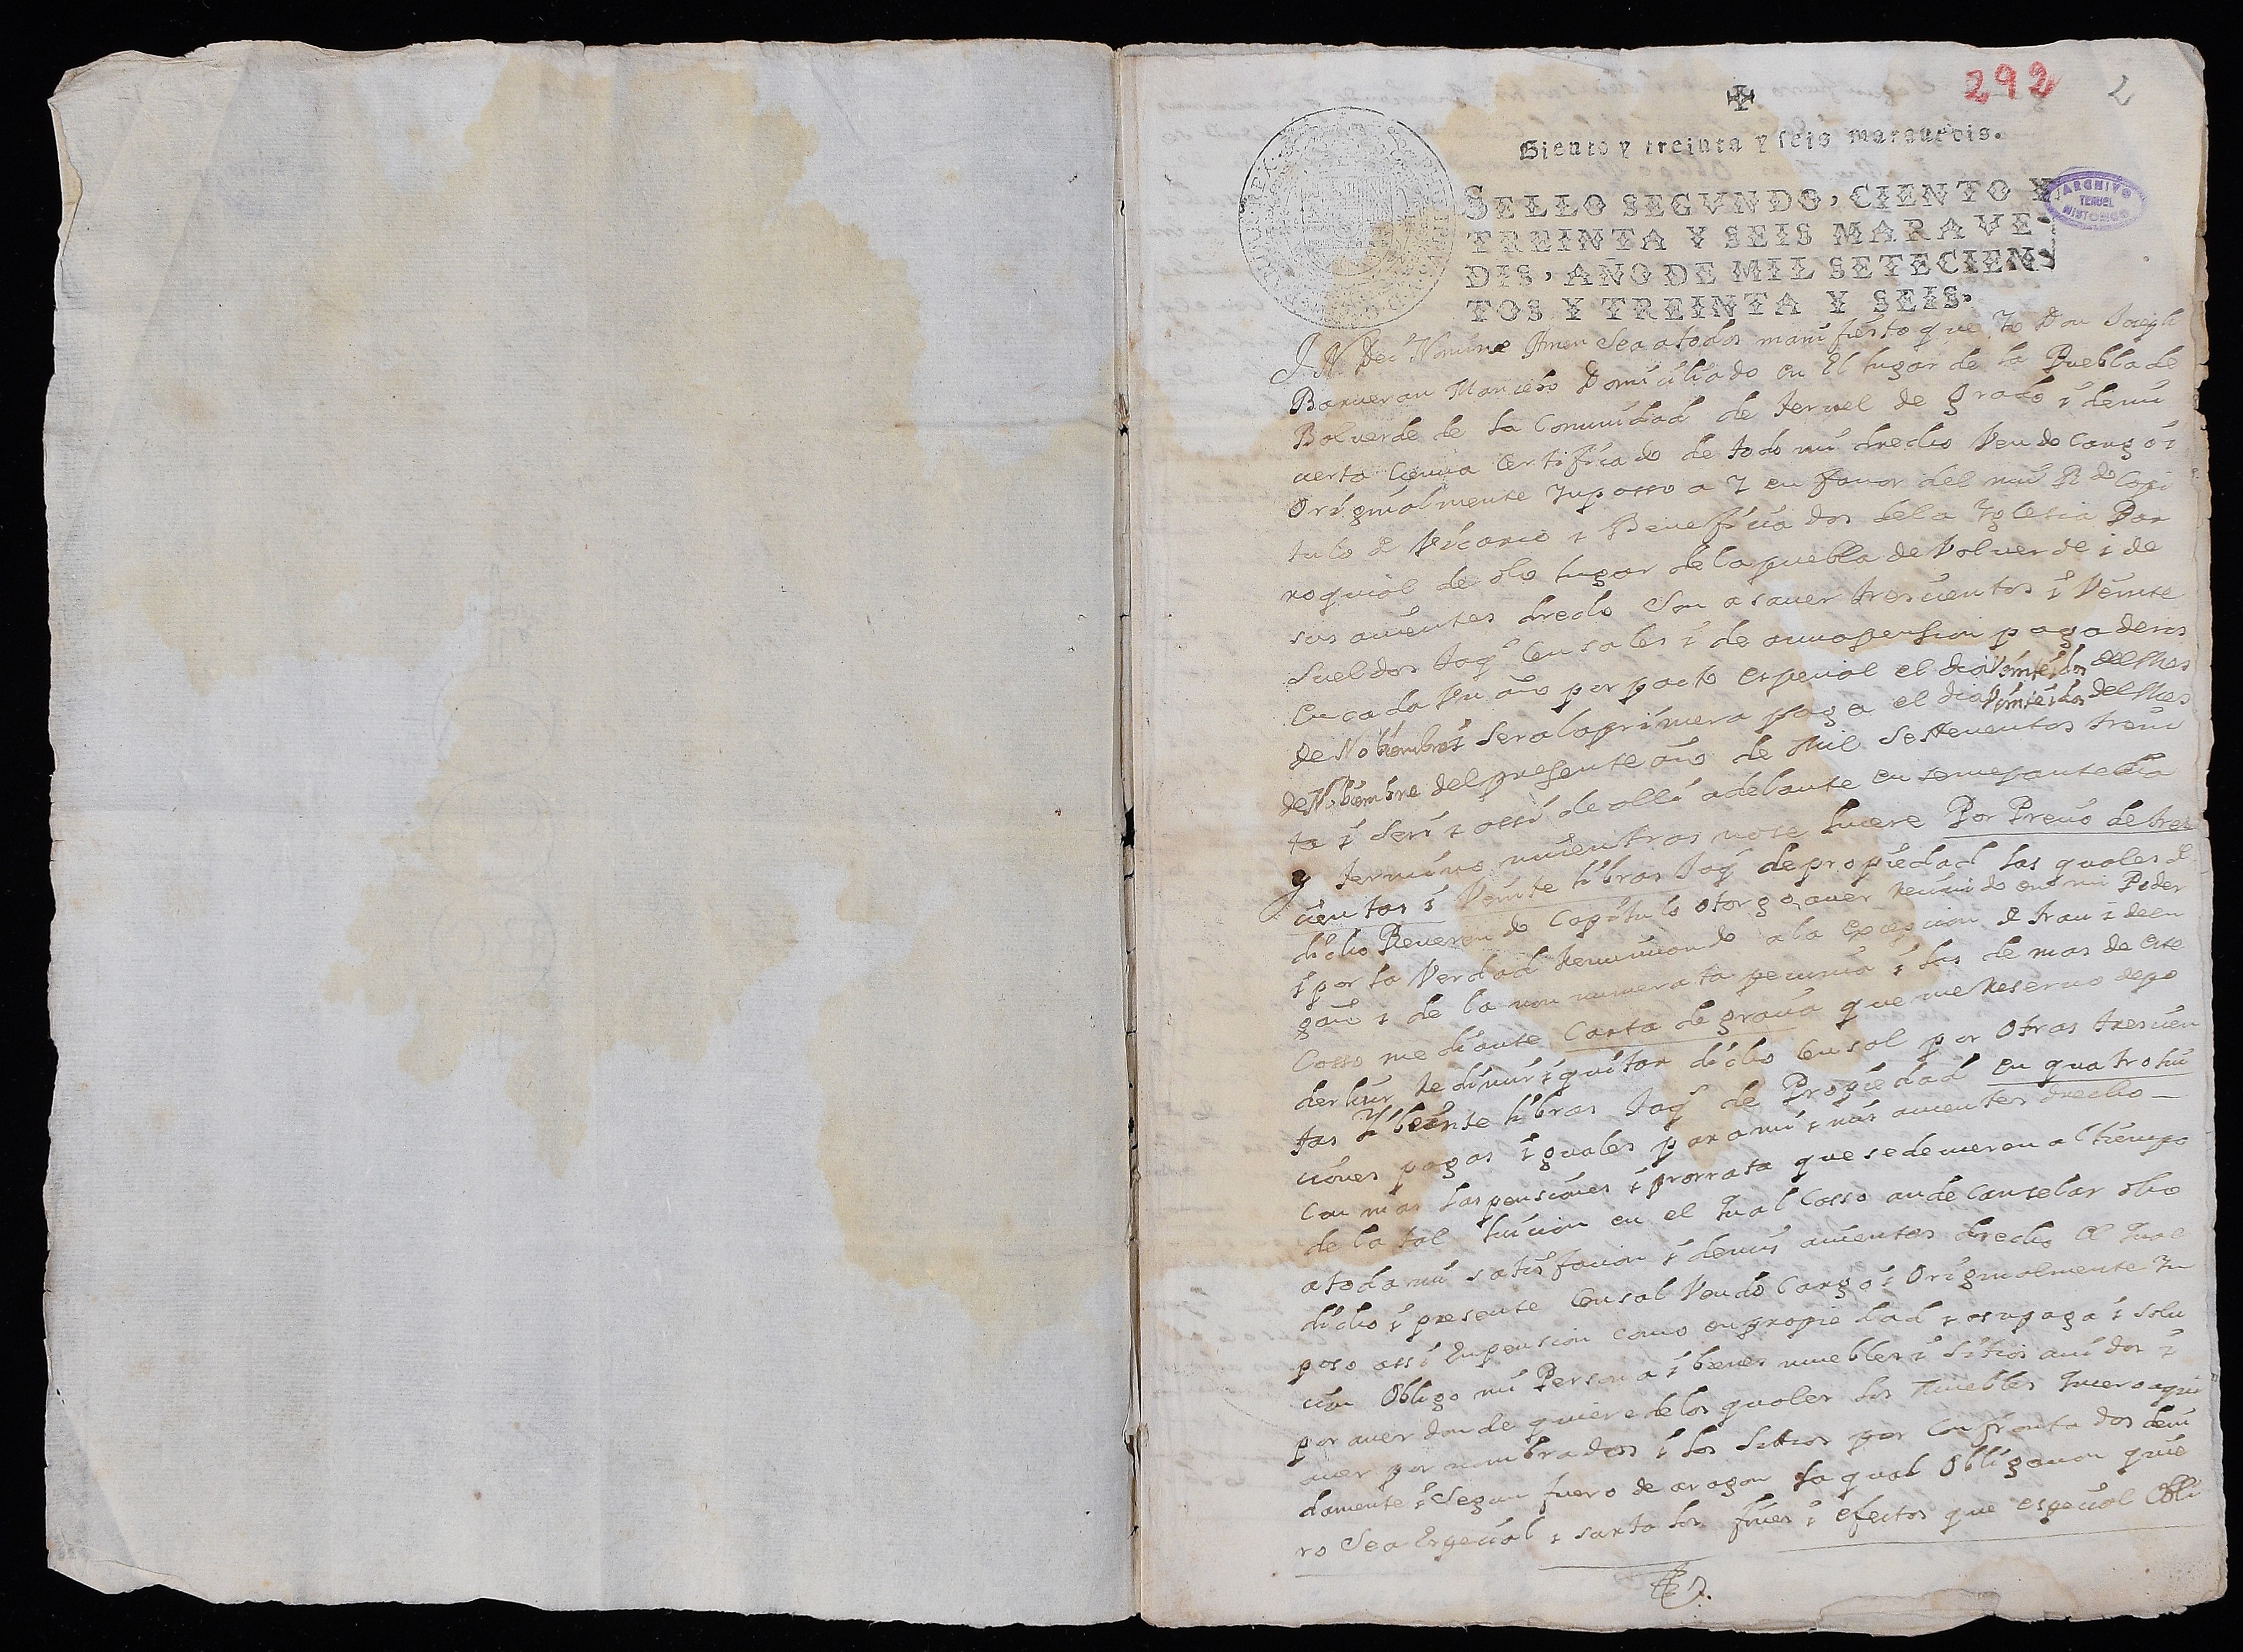 292 2
Ciento y treinta y seis maravedis.
SELLO SEGVNDO, CIENTO Y
TREINTA Y SEIS MARAVE-
DIS, AÑO DE MIL SETECIEN-
TOS Y TREINTA Y SEIS.
ARCHIVO
TERUEL
HISTORICO
In Dei Nomine Amen Sea a todos manifiesto que Yo Don Joseph
Mancebo Domiciliado en El lugar de la Puebla de
Balverde de la Comunidad de Teruel de grado i de mi
cierta Ciencia Certificado de todo mi drecho Vendo Cargo i
Originalmente Inposso a Y en favor del mui Rdo Capi
tulo de Vicario i Beneficiados de la Yglesia Par
roquial de dho lugar de la puebla de Valverde i de
sus avientes drecho Son a saver trescientos i Veinte
Sueldos Jaqs Censales i de annapension pagaderos
en cada Un año por pacto especial el dia Veinteidos del Mes
de Nobiembre i sera la primera paga el dia Veinteidos del Mes
de Nobiembre del presente año de Mil Settecientos trein
ta i Seis i assi de alli adelante en semejante dia
y termino mientras no se luiere Por Precio de tres
cientas i Veinte libras Jaqs de propiedad las quales de
dicho Reverendo Capitulo otorgo aver recivido en mi Poder
i por la Verdad Renunciando a la excepcion de frau i de en
gaño i de la non numerata pecunia i las de mas de este
Casso mediante Carta de gracia que me Reservo de po
der luir Redimir i quitar dicho Censal por Otras trescien
tas Y beinte libras Jaqs de Propiedad en quatro lui
ciones pagas iguales para mi i mis avientes drecho —
Con mas las pensiones i prorrata que se devieren al tiempo
de la tal luicion en el qual Casso an de Canselar dho
a toda mi satisfacion i de mis avientes drecho el qual
dicho i presente Censal Vendo Cargo i Originalmente In
poso assi en pension como en propiedad i a su paga i solu
cion Obligo mi Persona i bienes muebles i sitios avidos i
por aver donde quiere de los quales los Muebles quiero aqui
aver por nombrados i los Sittios por Confrontados devi
damente i Segun fuero de aragon la qual Obligacion quie
ro Sea Especial i surta los fines i efectos que especial Obli